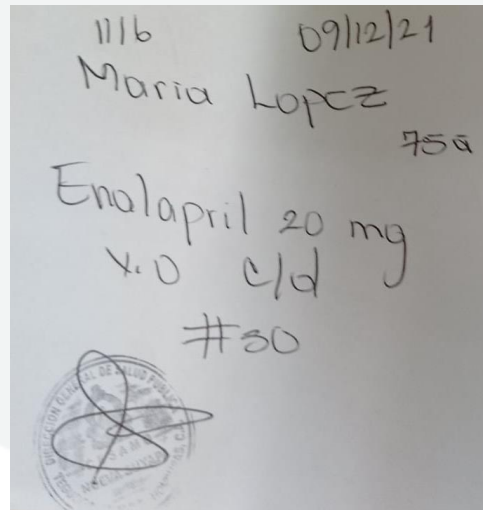 1116 09/12/21
Maria Lopez
75a
Enalapril 20 mg
V.O c/d
#30
DIRECCION GENERAL DE SALUD PUBLICA